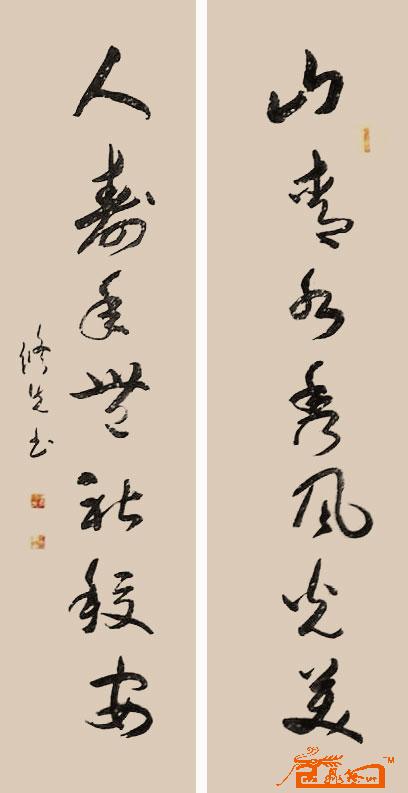 山青水秀风光美
人寿年丰社稷安